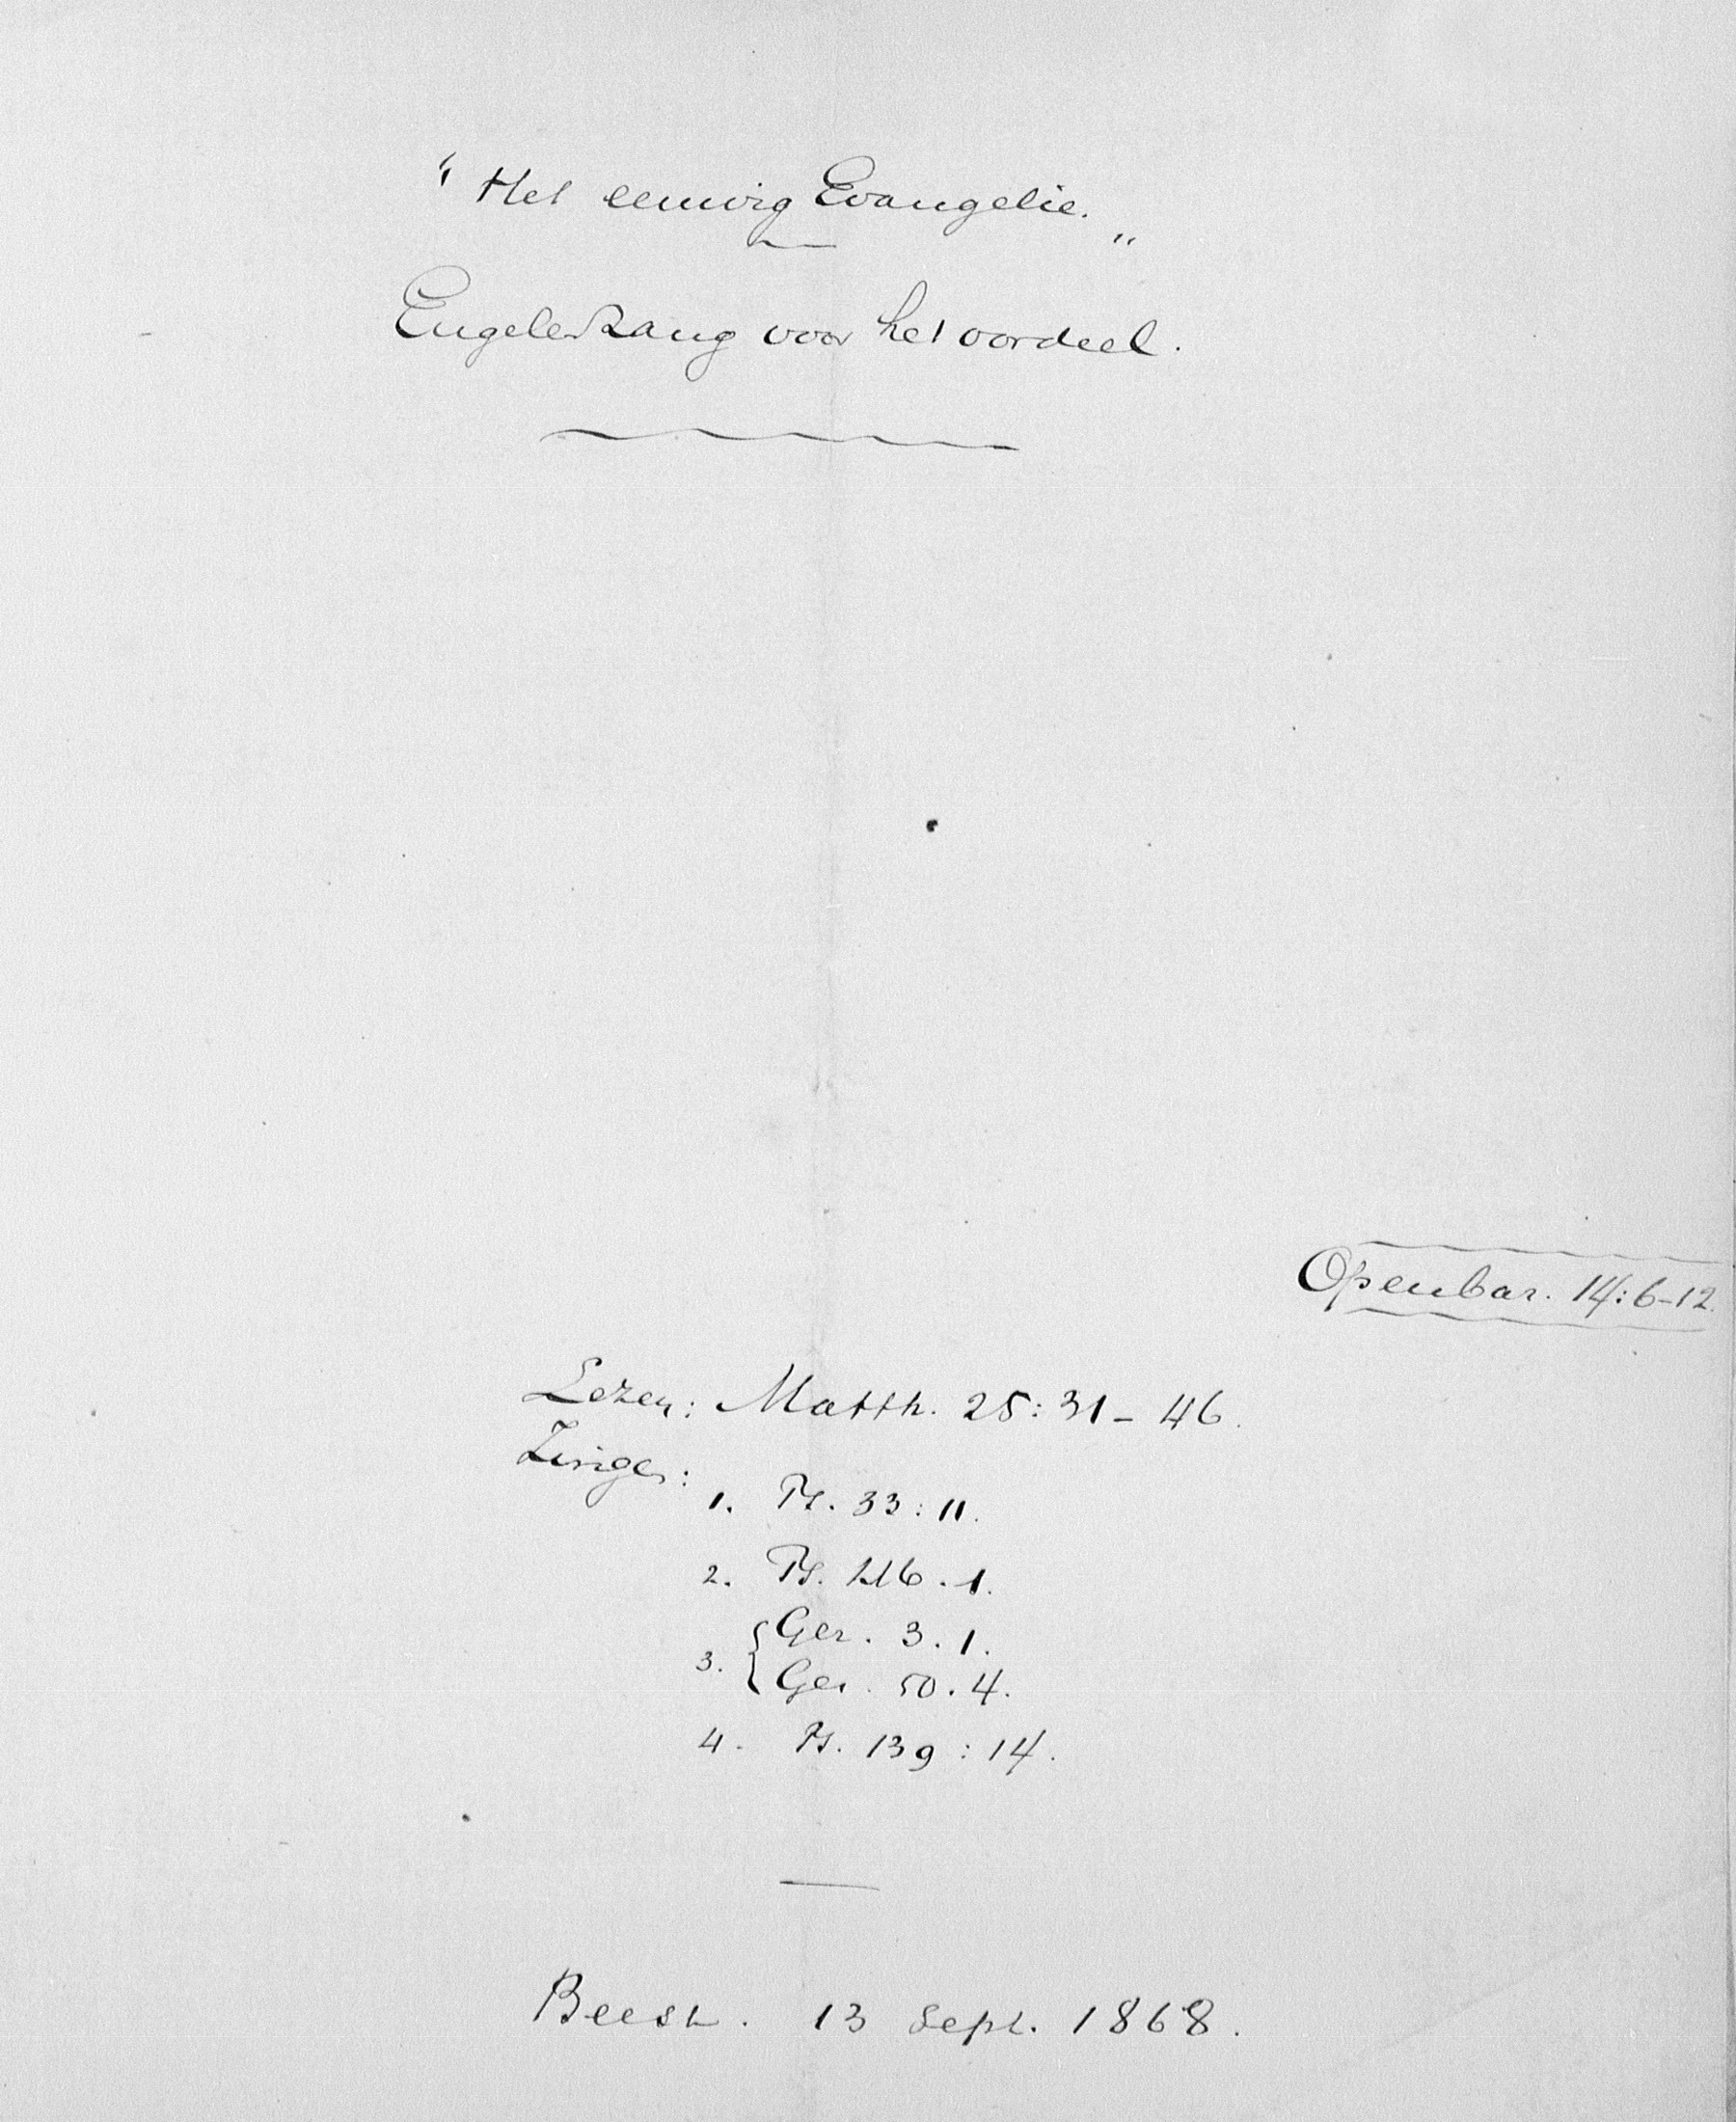 "Het eeuwig Evangelie."
Engelenzang voor het oordeel.
Openbar. 14:6-12.
Lezen: Matth. 25:31-46.
Zingen:
1. Ps. 33:11.
2. Ps. 146.1.
3. { Gez. 3.1.
Gez. 50.4.
4. Ps. 139:14.
Beesd. 13 Sept. 1868.